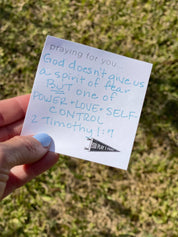 praying for you...
God doesn't give us
a spirit of fear
BUT one of
POWER + LOVE + SELF-
CONTROL
2 Timothy 1:7